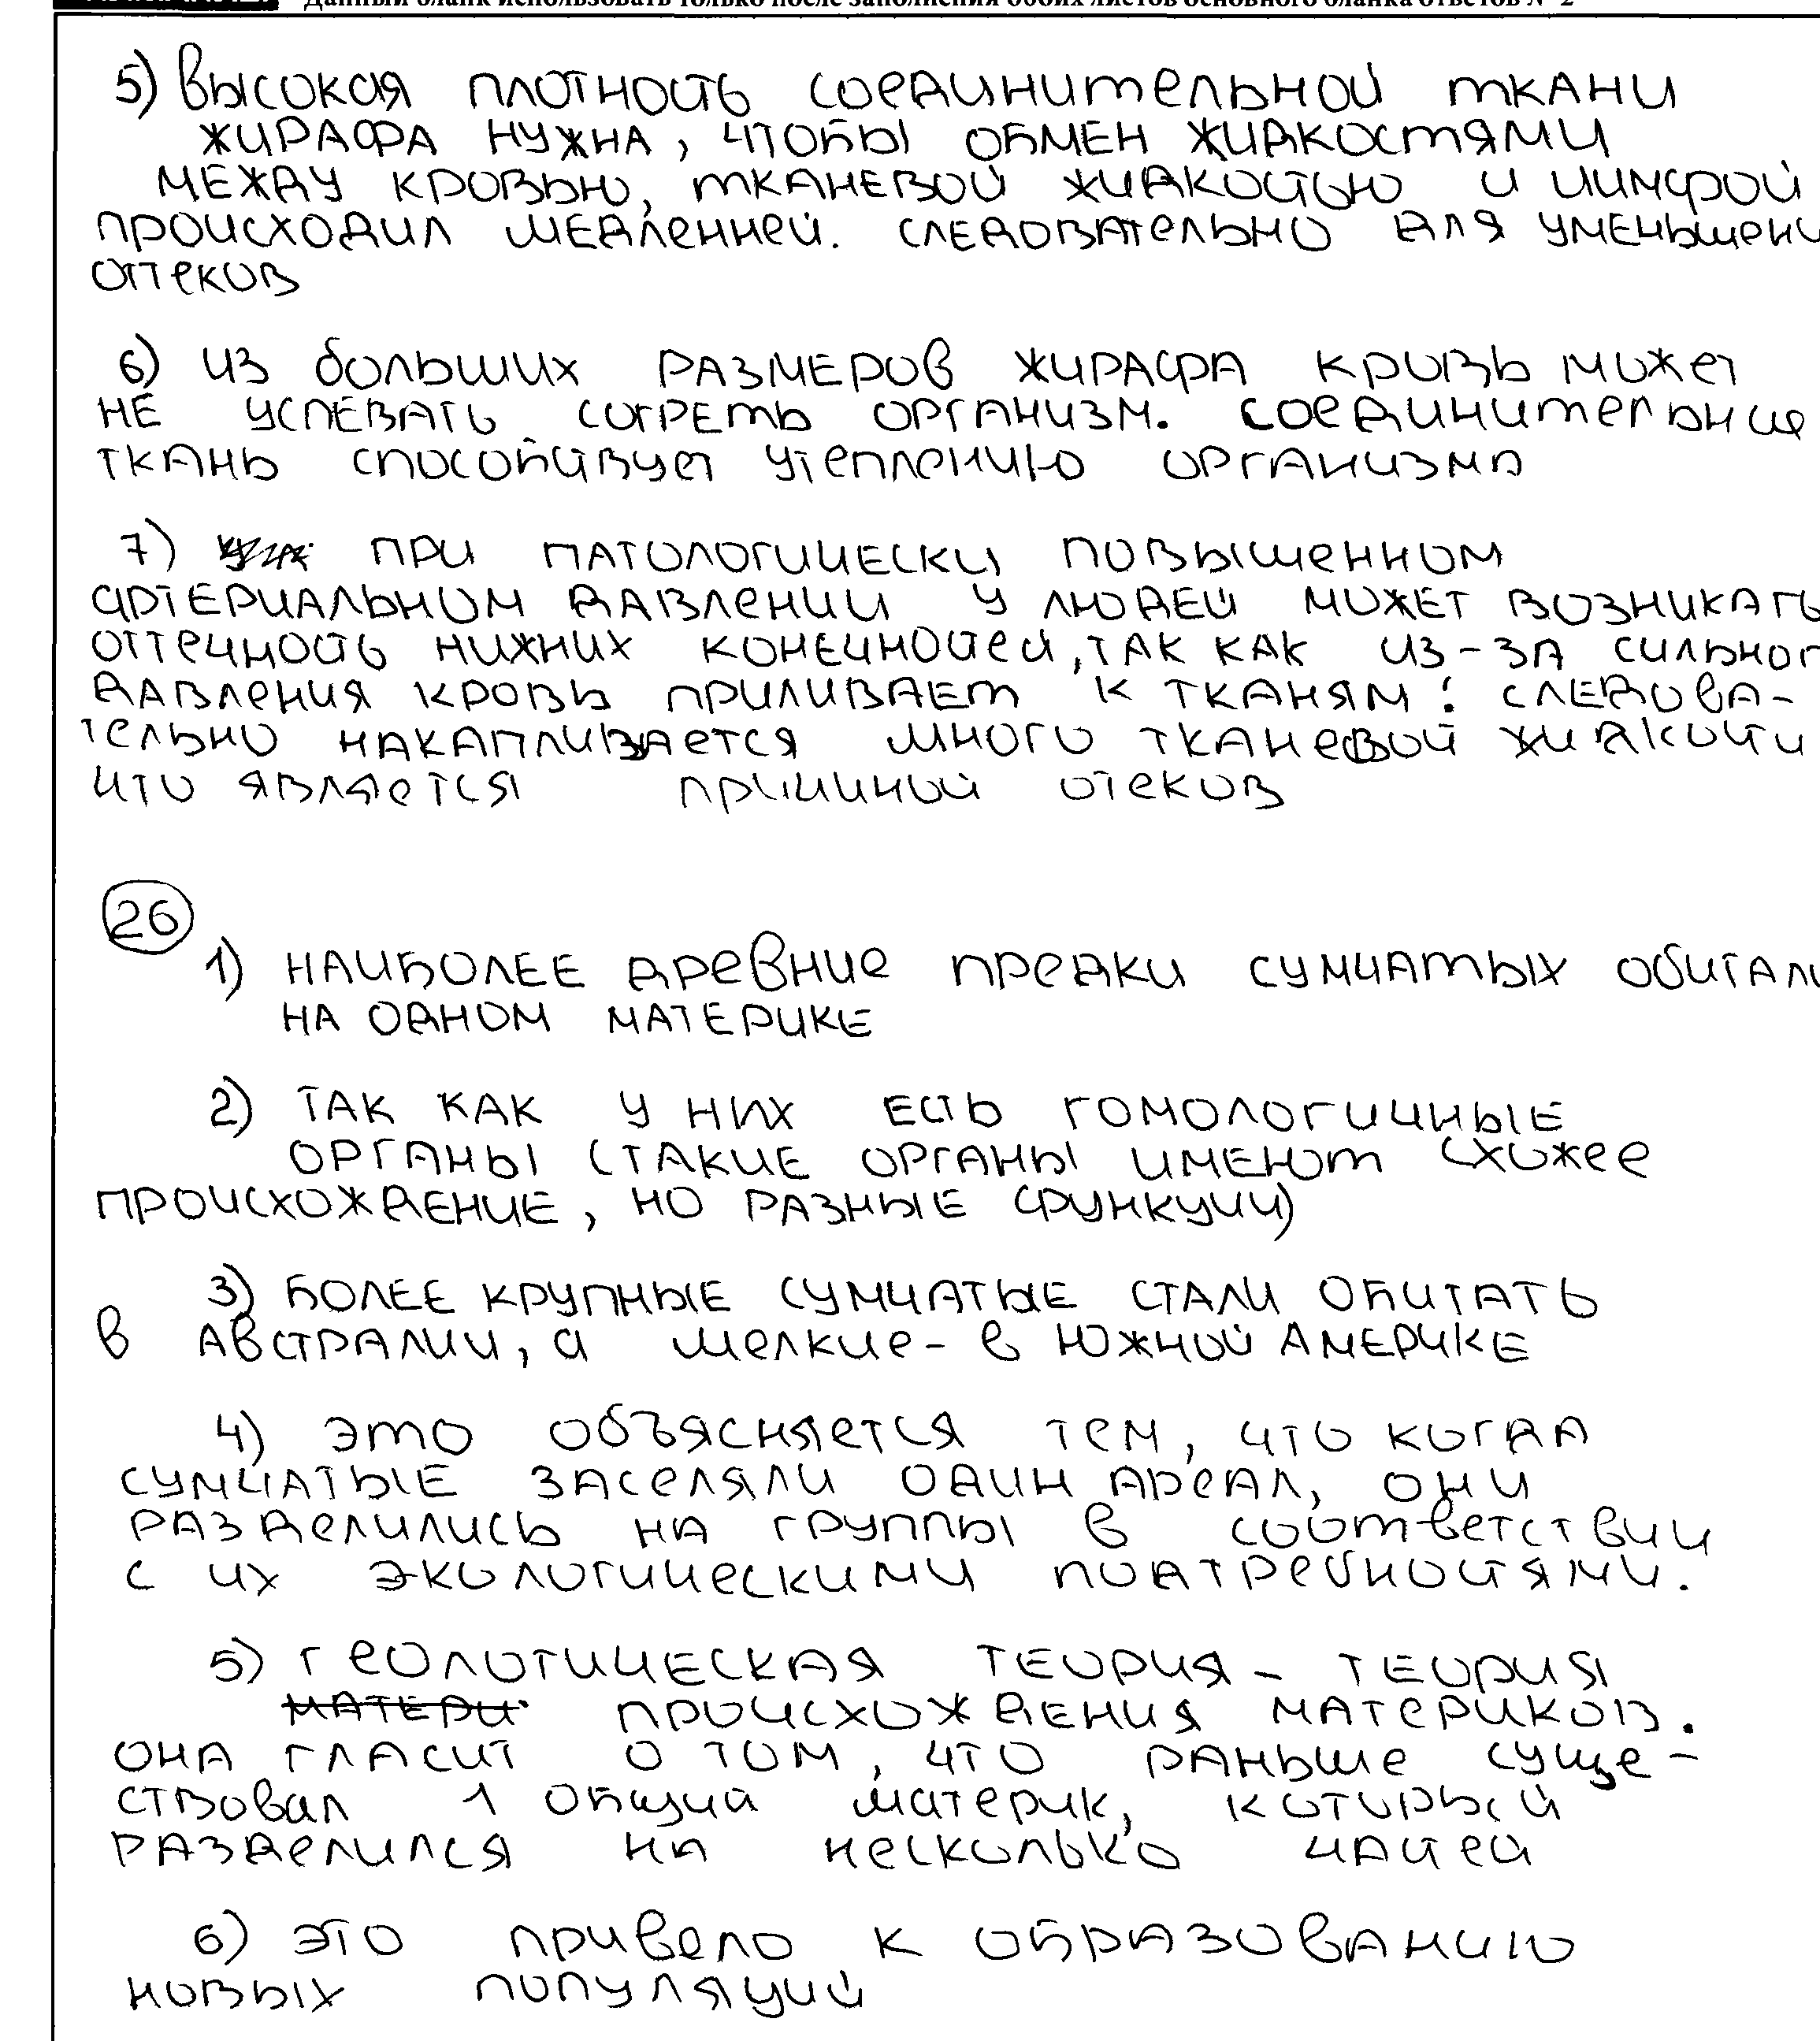 Данный бланк использовать только после заполнения обоих листов основного бланка ответов № 2
5) высокая плотность соединительной ткани
жирафа нужна, чтобы обмен жидкостями
между кровью, тканевой жидкостью и лимфой
происходил медленней. следовательно для уменьшени
отеков
6) из больших размеров жирафа кровь может
не успевать согреть организм. соединительные
ткань способствует утеплению организма
7) при патологически повышенном
артериальном давлении у людей может возникать
отечность нижних конечностей, так как из-за сильног
давления кровь приливает к тканям. следова-
тельно накапливается много тканевой жидкости
что является причиной отеков
26
1) наиболее древние предки сумчатых обитали
на одном материке
2) так как у них есть гомологичные
органы (такие органы имеют схожее
происхождение, но разные функции)
3) более крупные сумчатые стали обитать
в Австралии, а мелкие - в Южной Америке
4) это объясняется тем, что когда
сумчатые заселяли один ареал, они
разделились на группы в соответствии
с их экологическими потребностями.
5) геологическая теория - теория
матери происхождения материков.
она гласит о том, что раньше суще-
ствовал 1 общий материк, который
разделился на несколько частей
6) это привело к образованию
новых популяций